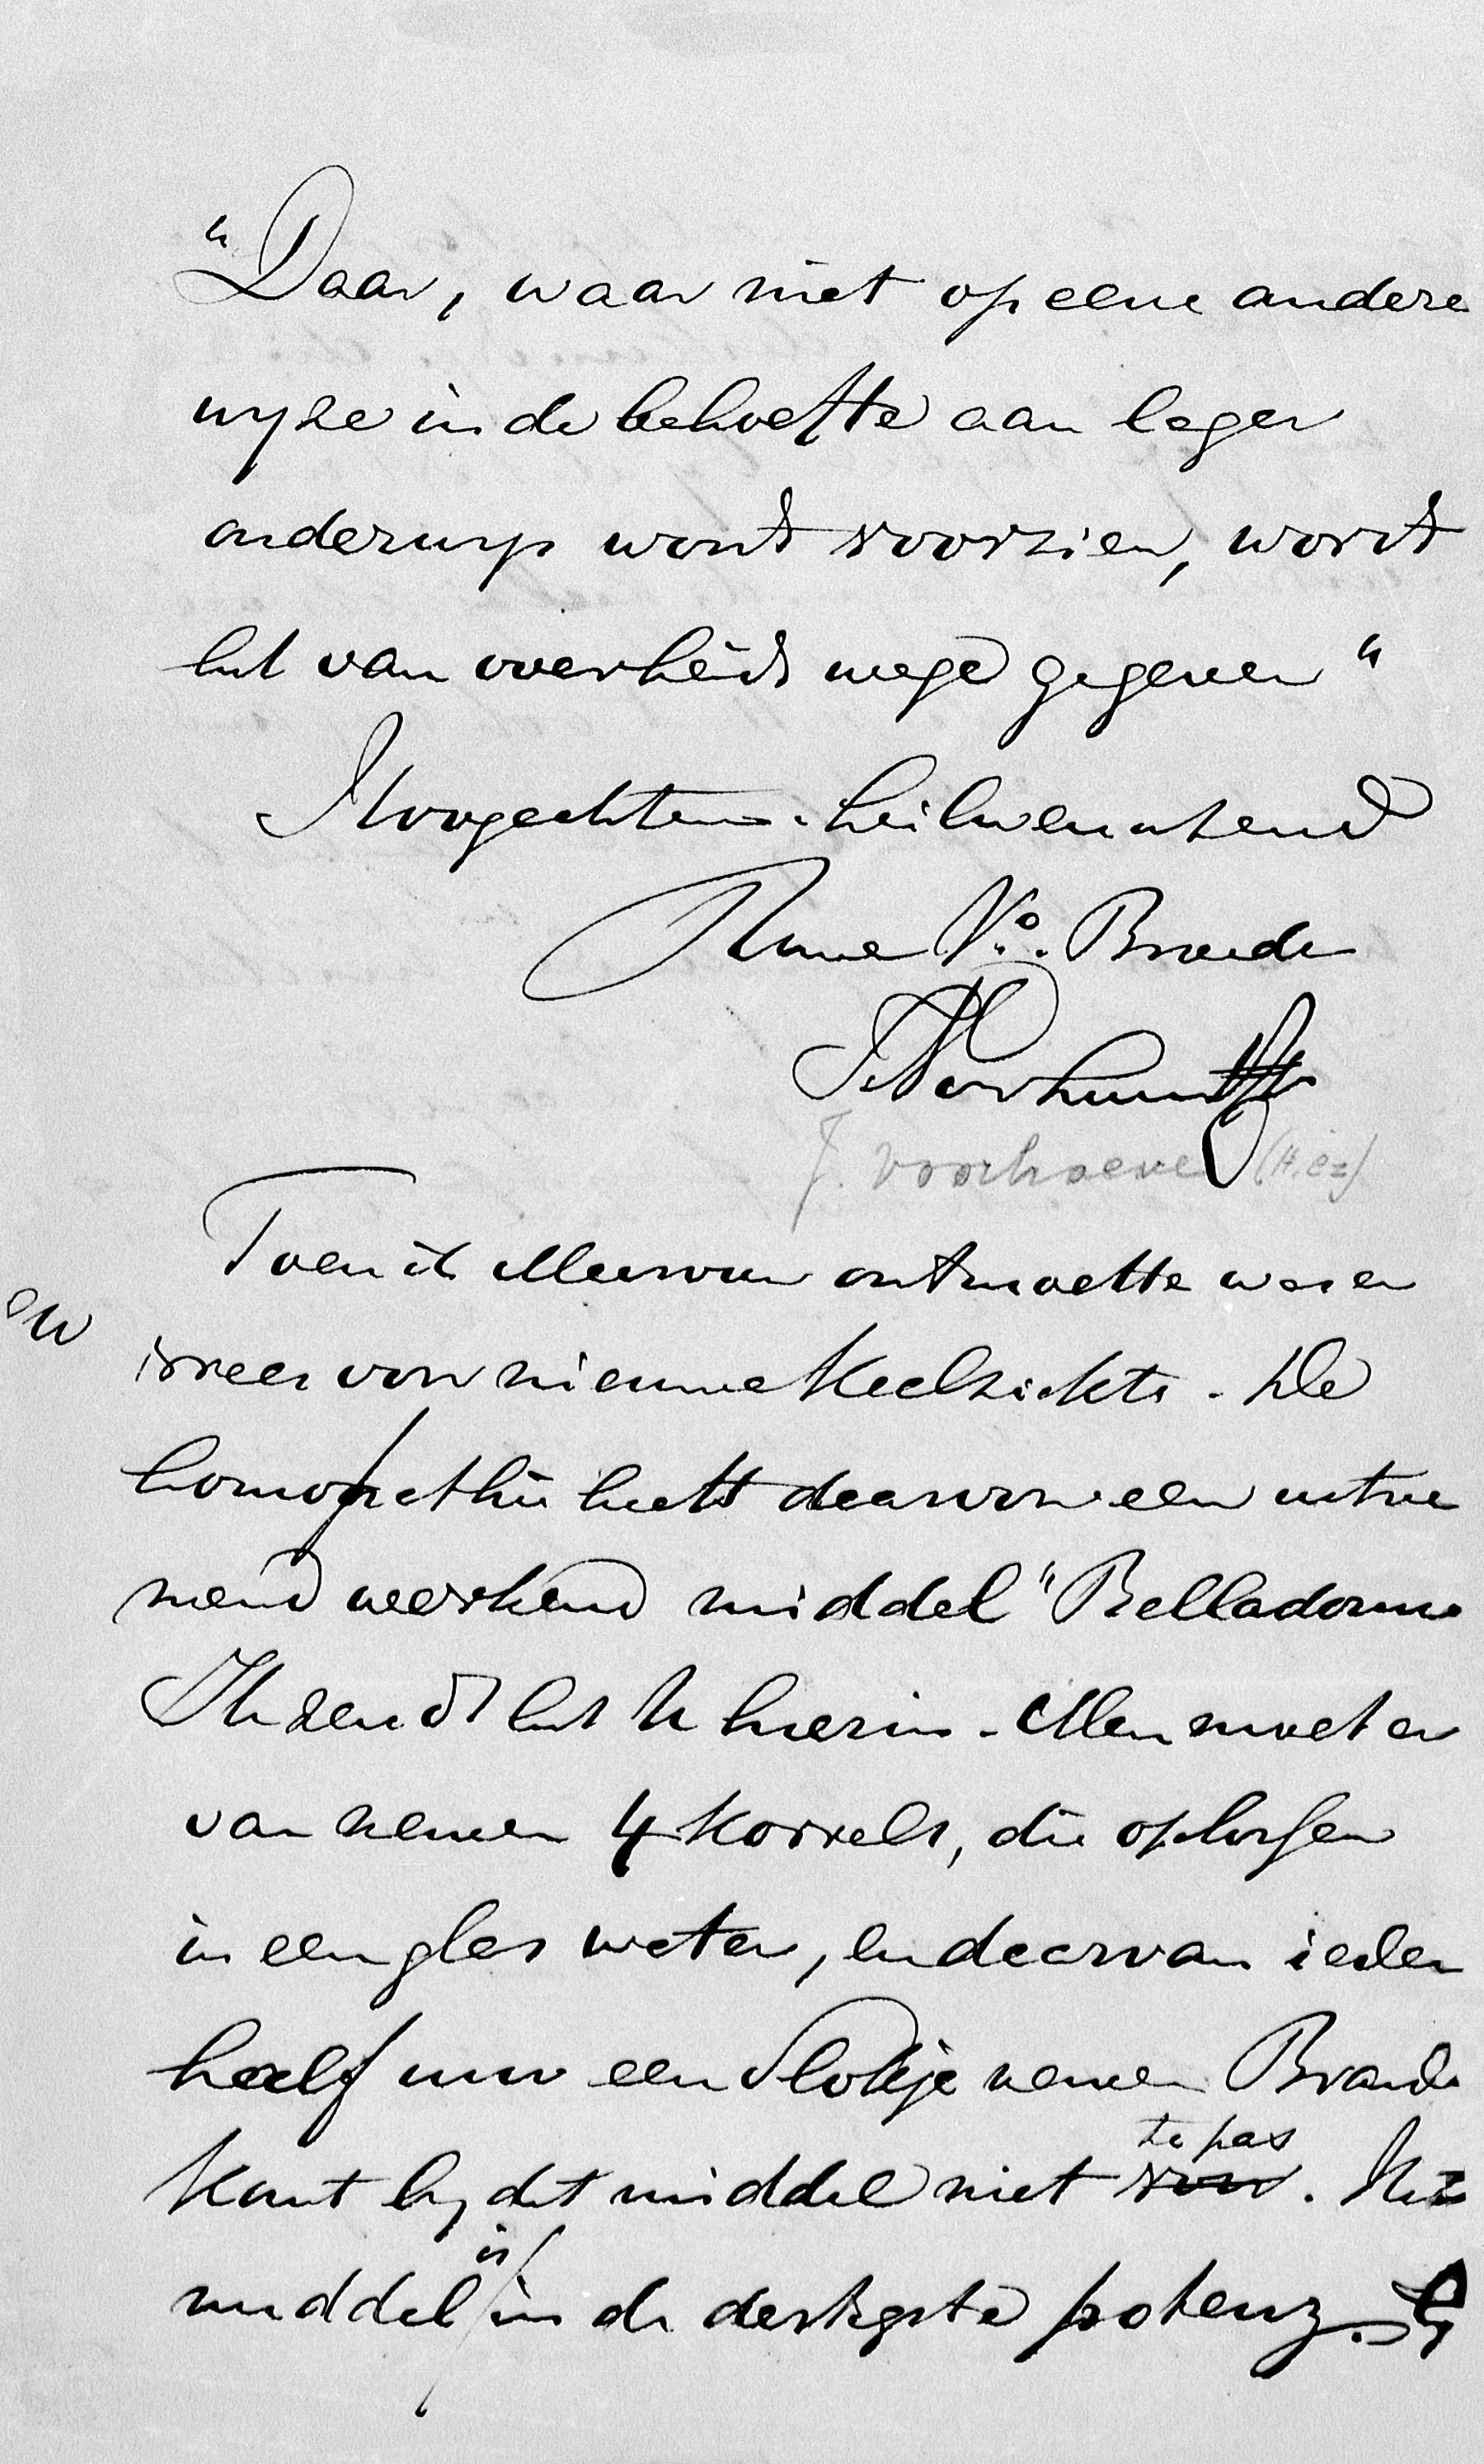 "Daar, waar niet op eene andere
wyze in de behoefte aan lager
onderwys wordt voorzien, wordt
het van overheids wege gegeven"
Hoogachtend heilwenschend
Uwe Vo. Broeder
J Voorhoeve
J. Voorhoeve (H.Cz)
Toen ik Mevrouw ontmoette was er
vrees voor nieuwe Keelziekte. De
homopathie heeft daarvoor een uitne
mend werkend middel "Belladonna
Ik zend het U hierin. Men moet er
van nemen 4 korrels, die oplossen
in een glas water, en daarvan ieder
half uur een Slokje nemen Brand
komt by dit middel niet voor te pas. Het
middel is in de dertigste potenz.